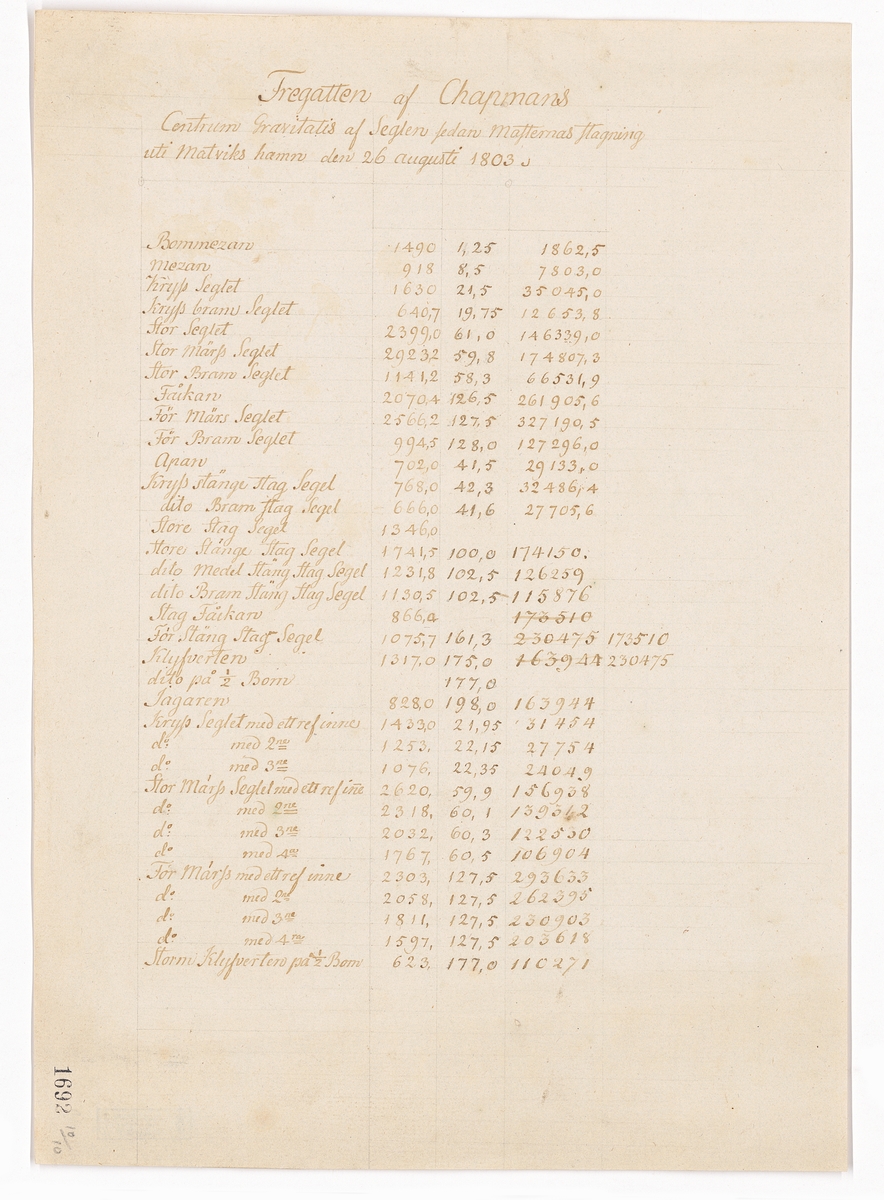 Fregatten af Chapmans
Centrum Gravitatis af Seglen sedan Masternas stagning
uti Matviks hamn den 26 augusti 1803
Bommezan 1490 1,25 1862,5
Mezan 918 8,5 7803,0
Kryss Seglet 1630 21,5 35045,0
Kryss bram Seglet 640,7 19,75 12653,8
Stor Seglet 2399,0 61,0 146339,0
Stor Märss Seglet 2923,2 59,8 174807,3
Stor Bram Seglet 1141,2 58,3 66531,9
Fåckan 2070,4 126,5 261905,6
För Märs Seglet 2566,2 127,5 327190,5
För Bram Seglet 994,5 128,0 127296,0
Apan 702,0 41,5 29133,0
Kryss stänge stag Segel 768,0 42,3 32486,4
dito Bram stag Segel 666,0 41,6 27705,6
Store Stag Segel 1346,0
Store Stänge Stag Segel 1741,5 100,0 174150.
dito Medel Stäng Stag Segel 1231,8 102,5 126259
dito Bram Stäng Stag Segel 1130,5 102,5 115876
Stag Fåckan 866,0 173510
För Stäng Stag Segel 1075,7 161,3 230475 173510
Klyfverten 1317,0 175,0 163944 230475
dito på ½ Bom 177,0
Jagaren 828,0 198,0 163944
Kryss Seglet med ett ref inne 1433,0 21,95 31454
d:o med 2ne 1253, 22,15 27754
d:o med 3ne 1076, 22,35 24049
Stor Märss Seglet med ett ref iñe 2620, 59,9 156938
d:o med 2ne 2318, 60,1 139312
d:o med 3ne 2032, 60,3 122530
d:o med 4ra 1767, 60,5 106904
För Märss med ett ref inne 2303, 127,5 293633
d:o med 2ne 2058, 127,5 262395
d:o med 3ne 1811, 127,5 230903
d:o med 4ra 1597, 127,5 203618
Storm Klyfverten på ½ Bom 623, 177,0 110271
1692 10/10